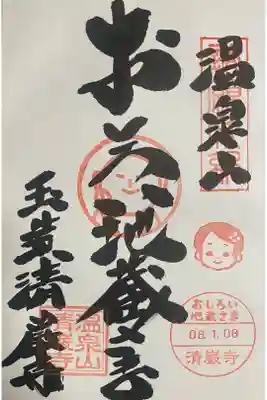 温泉山
お美地蔵
玉造清巌寺
おしろい
地蔵さま
08.1.08
清巌寺
温泉山
清巌寺